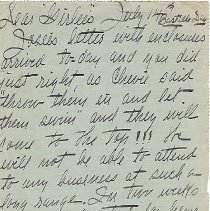 Dear Girlies July 14
Jose's letter with enclosures
arrived to-day and you did
just right, as Chevie said
throw them in and let
them swim and they will
come to the top!!! We
will not be able to attend
to any business at such a
long range. In two weeks